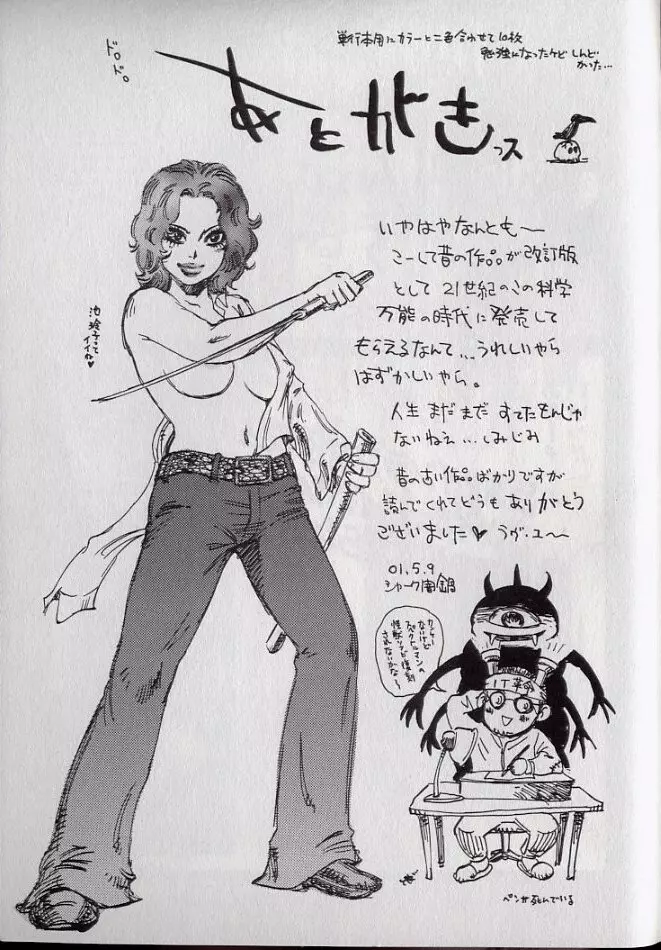 ドロドロ
単行本用にカラーと二色合わせて10枚
勉強になったケド しんど
かった…
あとがきっス
いやはやなんとも〜
こーして昔の作品が改訂版
として 21世紀のこの科学
万能の時代に発売して
もらえるなんて…うれしいやら
はずかしいやら。
人生 まだまだ すてたもんじゃ
ないねぇ…しみじみ
昔の古い作品ばかりですが
読んでくれてどうも ありがとう
ございました♥ うが・ュ〜
01.5.9
シャーク闇鍋
池玲子って
イイね♥
ないけど
スペクトルマンの
怪獣ソフビ復刻
されないかな〜
IT革命
ペンが死んでいる